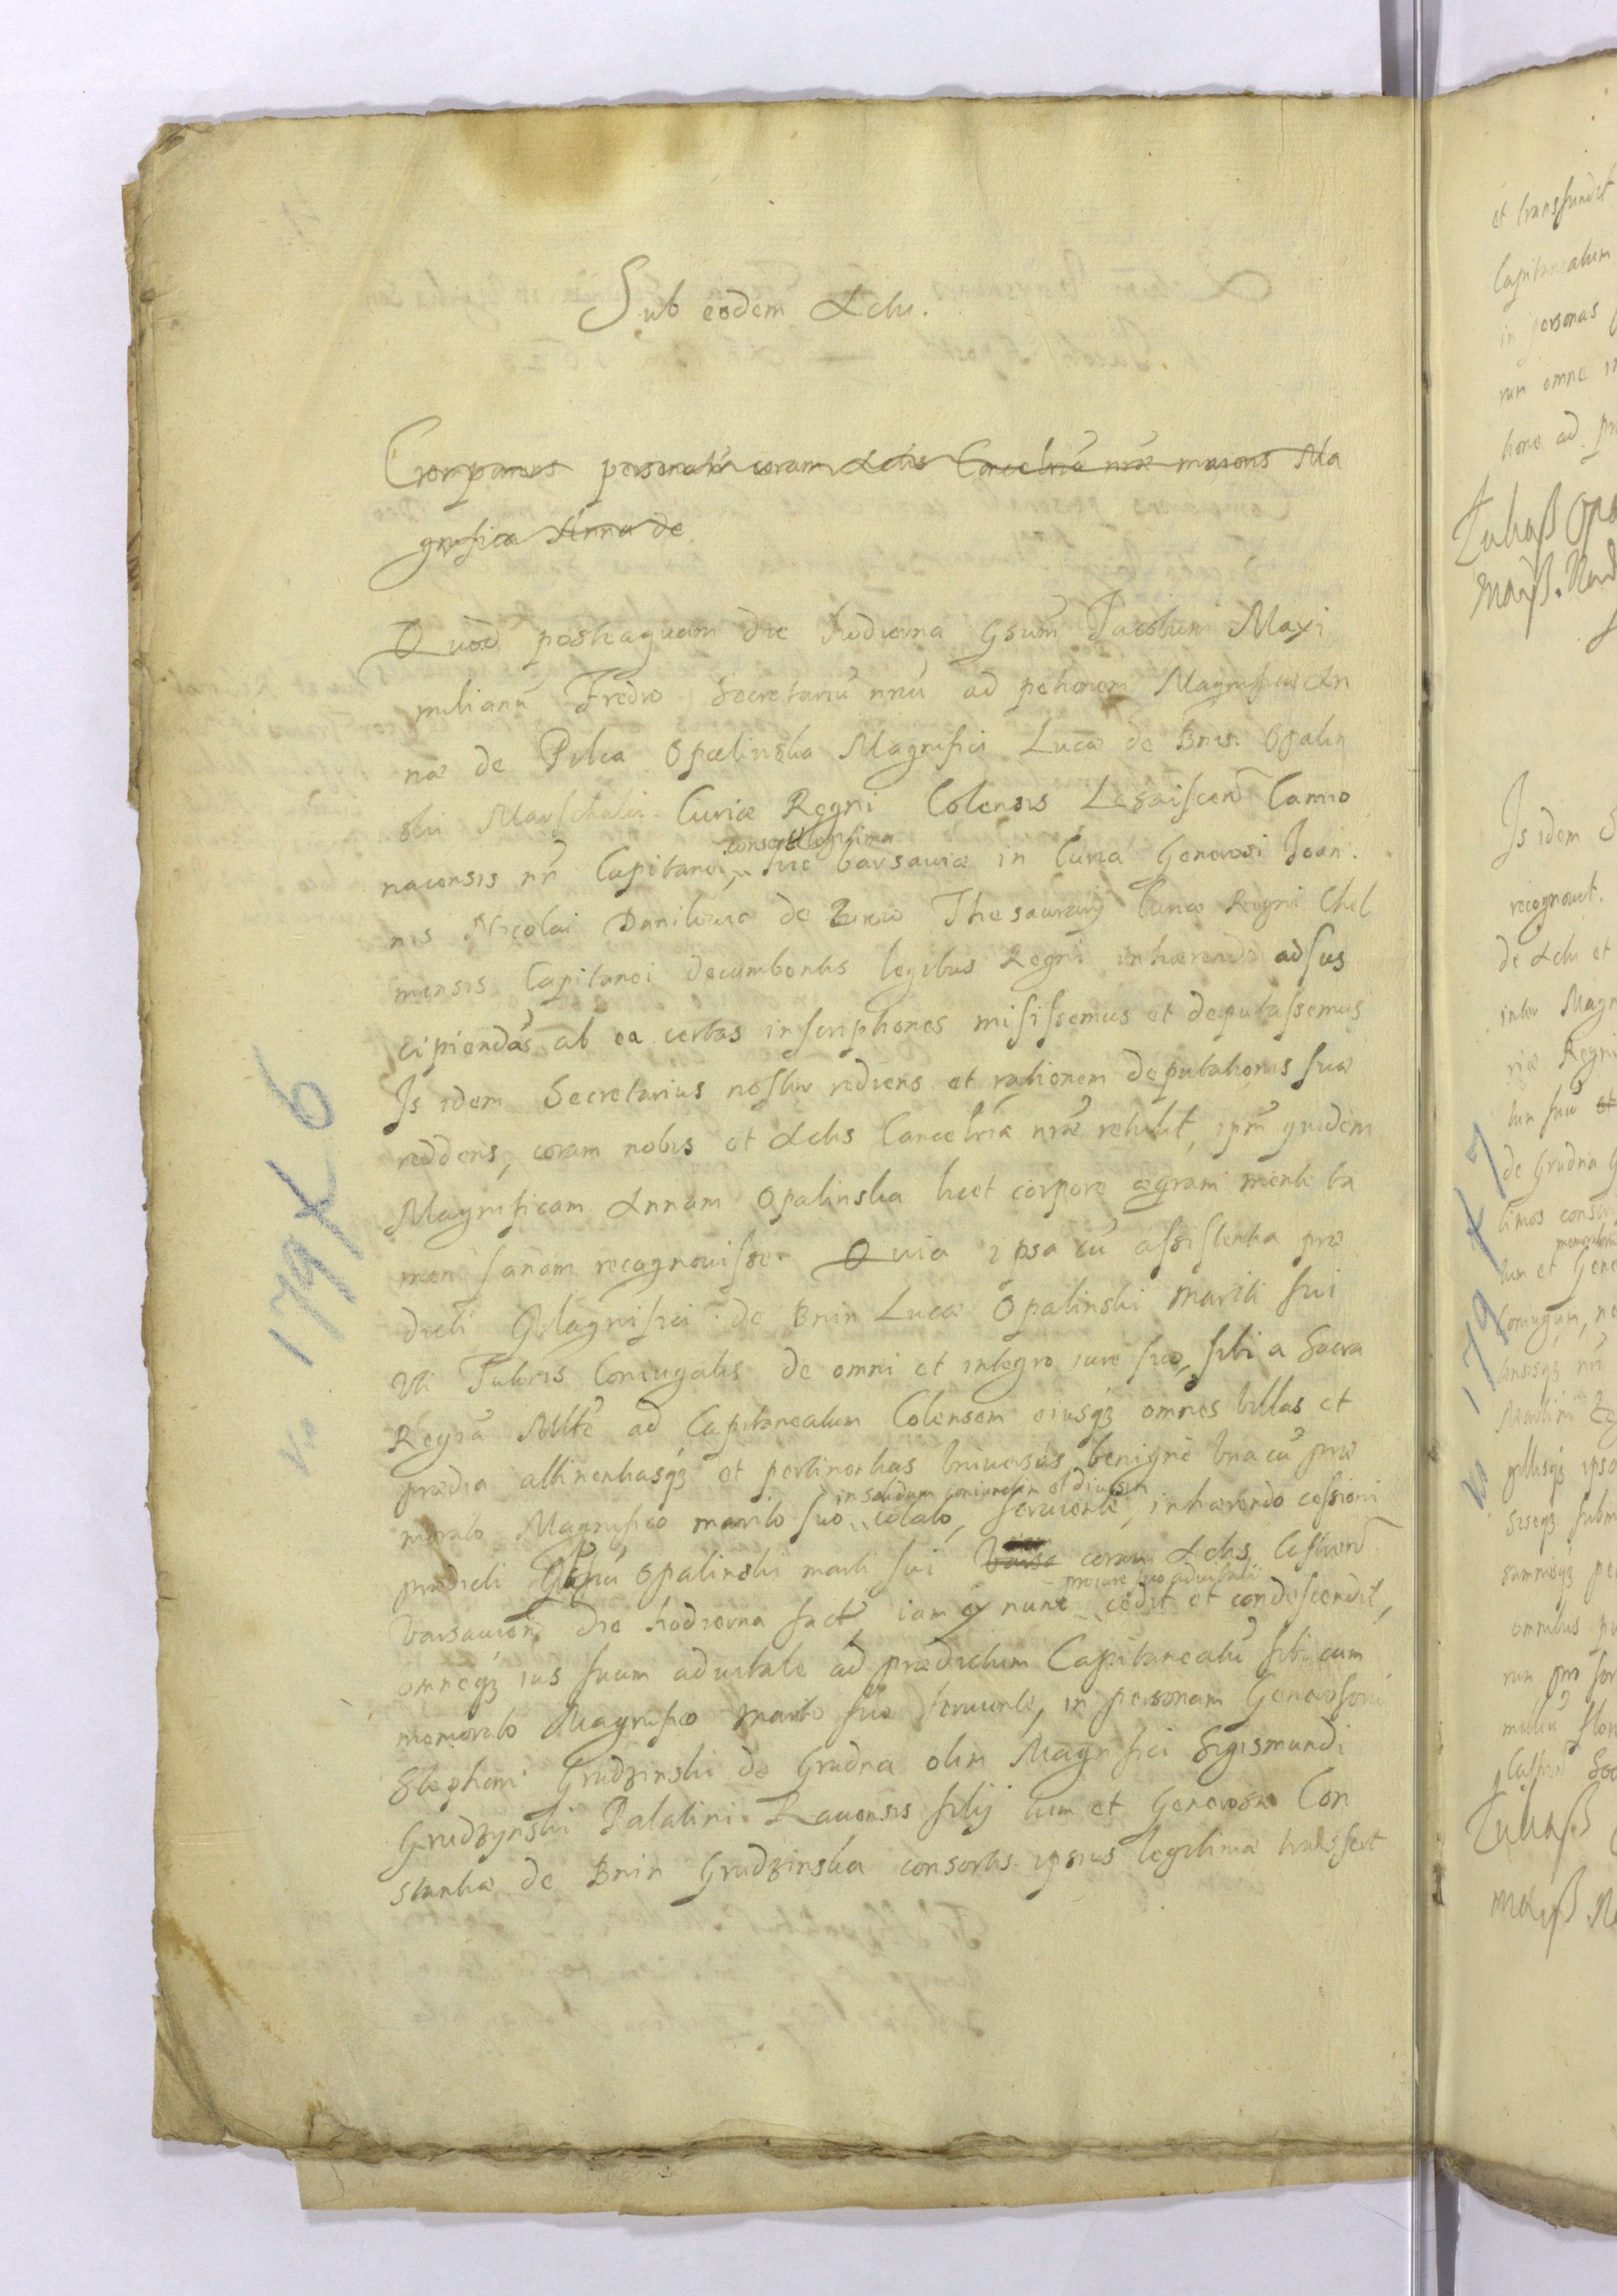 Sub eodem Actu.
Comparens personaliter coram Actis Cancelriæ nræ maioris Ma
gnifica Anna de
Quod posteaquam die hodierna Gsum Jacobum Maxi
milianũ Fredro Secretariũ nrũ ad petionem Magnificæ An
næ de Pilca Opalinska Magnifici Lucæ de Bnin Opalin
ski Marschalci Curiæ Regni Colensis Lezaiscen Camio
consortis legitima
nacensis nr̃ Capitanei, hic Varsauiæ in Curia Generosi Joan
nis Nicolai Danilowic de Zurow Thesaurarij Curiæ Regni Chel
mensis Capitanei decumbentis legibus Regni inhærendo ad sus
cipiendas ab ea certas inscriptiones misissemus et deputassemus
Is idem Secretarius noster rediens et rationem deputationis suæ
reddens, coram nobis et Actis Cancelriæ nræ retulit, ipm̃ quidem
Magnificam Annam Opalinska licet corpore ægram mente ta
men sanam recognouisse. Quia ipsa cũ assistentia præ
dicti Magnifici de Bnin Lucæ Opalinski mariti sui
Vti Tutoris Coniugalis de omni et integro iure suo, sibi a Sacra
Regia Mtte ad Capitaneatum Colensem eiusq₃ omnes villas et
prædia attinentiasq₃ et pertinentias vniuersas benigne vna cũ præ
in solidum coniunctim et diuisim
morato Magnifico marito suo colato, seruiente, inhærendo cessioni
prædicti Opalinski mariti sui coram Actis Castren
pro iure suo aduitali
Varsauien die hodierna factæ iam ex nunc cedit et condescendit,
omneq₃ ius suum aduitale ad prædictum Capitaneatũ sibi cum
memorato Magnifico marito suo seruiente, in personam Generosorũ
Stephani Grudzinski de Grudna olim Magnifici Sigismundi
Grudzynski Palatini Rauensis filij tum et Generosæ Con
stantiæ de Bnin Grudzinska consortis ipsius legitima transfert
Vo 179 K 6
et transfundit
Capitaneatum
in personas
rum omne
tione ad
Łukasz Opa
Marsz. Nad
Is idem
recognouit.
de Actu et
inter Magn
riæ Regni
tum suũ et
de Grudna
timos
tum et Gene
Coniugum,
tensisq₃ nr̃i
Martini
ipso
sisq₃ subm
summisq₃
omnibus
rum pro
milliũ flor
Castren
Łukasz
Marsz
Vo 179 K 7